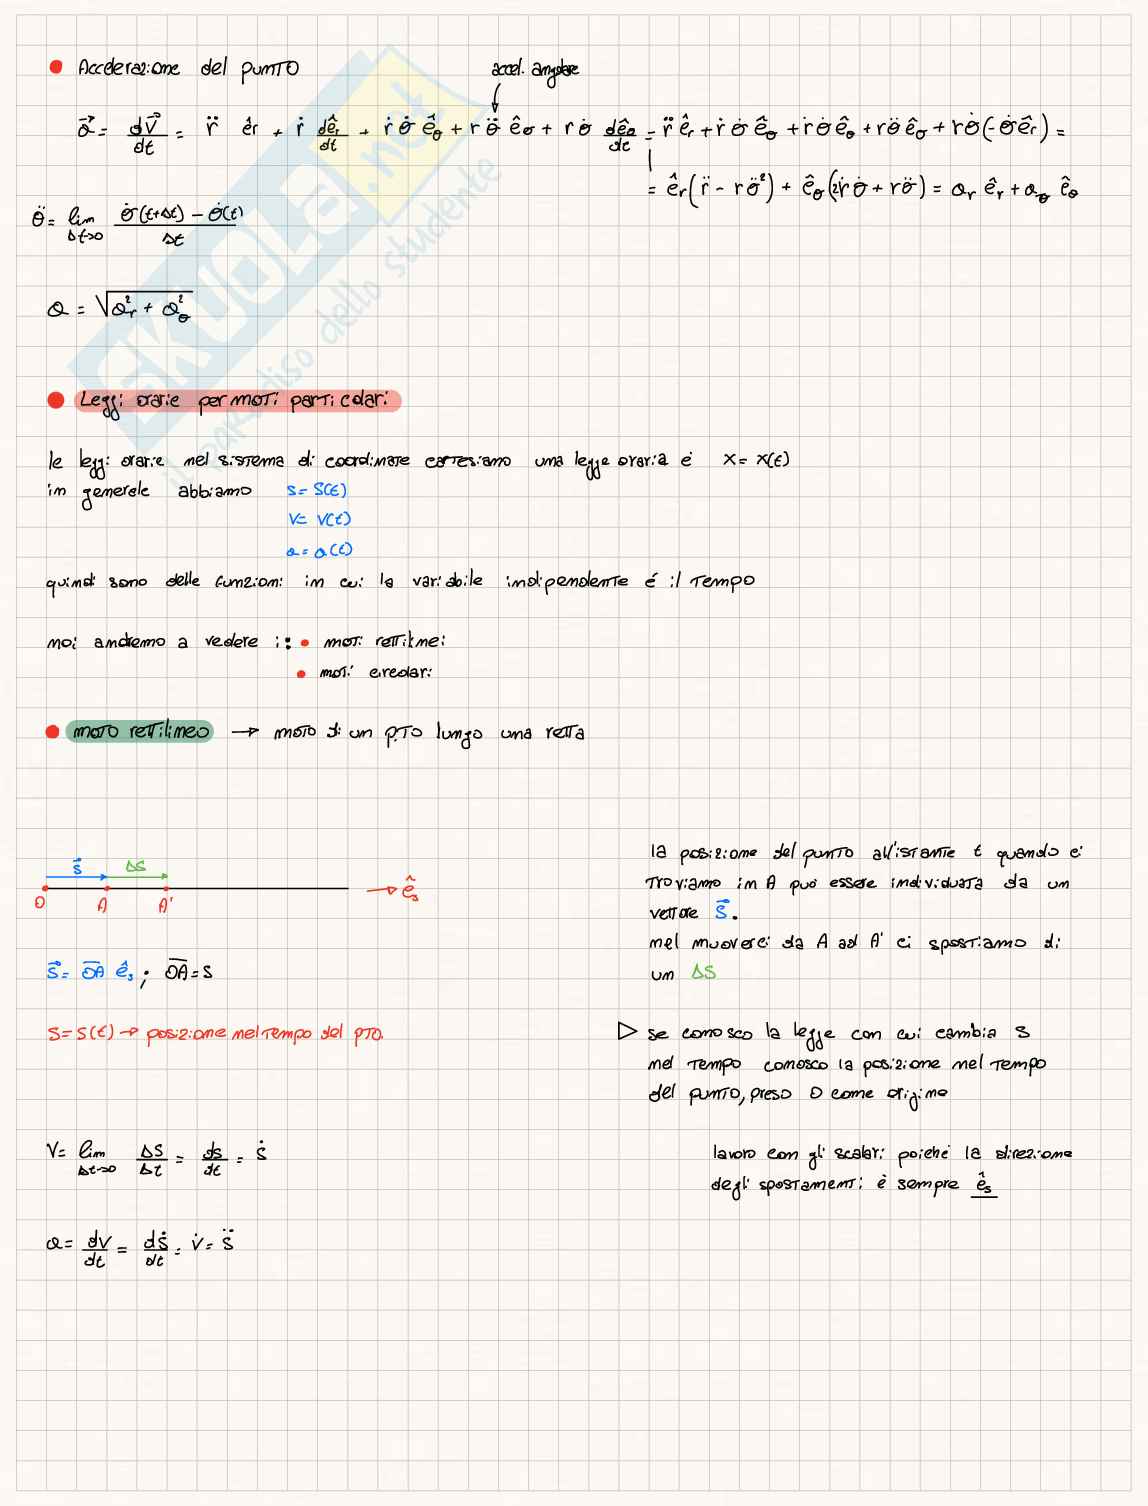 • Accelerazione del punto
accel. angolare
a⃗ = dv⃗/dt = r̈ ê_r + ṙ dê_r/dt + ṙ θ̇ ê_θ + r θ̈ ê_θ + r θ̇ dê_θ/dt = r̈ ê_r + ṙ θ̇ ê_θ + ṙ θ̇ ê_θ + r θ̈ ê_θ + r θ̇ (-θ̇ ê_r) =
= ê_r (r̈ - r θ̈²) + ê_θ (2ṙ θ̇ + r θ̈) = a_r ê_r + a_θ ê_θ
θ̈ = lim Δt→0 θ̇(t+Δt) - θ̇(t) / Δt
a = √(a_r² + a_θ²)
SKUOLA.net
il paradiso dello studente
• Leggi orarie per moti particolari
le leggi orarie nel sistema di coordinate cartesiano una legge oraria è x = x(t)
in generele abbiamo s = s(t)
v = v(t)
a = a(t)
quindi sono delle funzioni in cui la variabile indipendente é il tempo
noi andremo a vedere i: • moti rettilinei
• moti circolari
• moto rettilineo → moto di un p.to lungo una retta
s⃗ ΔS
O A A' → ê_s
la posizione del punto all'istante t quando ci
troviamo in A può essere individuata da un
vettore s⃗.
nel muoverci da A ad A' ci spostiamo di
un ΔS
s⃗ = OA ê_s ; OA = s
s = s(t) → posizione nel tempo del pto.
▷ se conosco la legge con cui cambia s
nel tempo conosco la posizione nel tempo
del punto, preso O come origine
v = lim Δt→0 ΔS/Δt = ds/dt = ṡ
lavoro con gli scalari poiché la direzione
degli spostamenti è sempre ê_s
a = dv/dt = dṡ/dt = v̇ = s̈